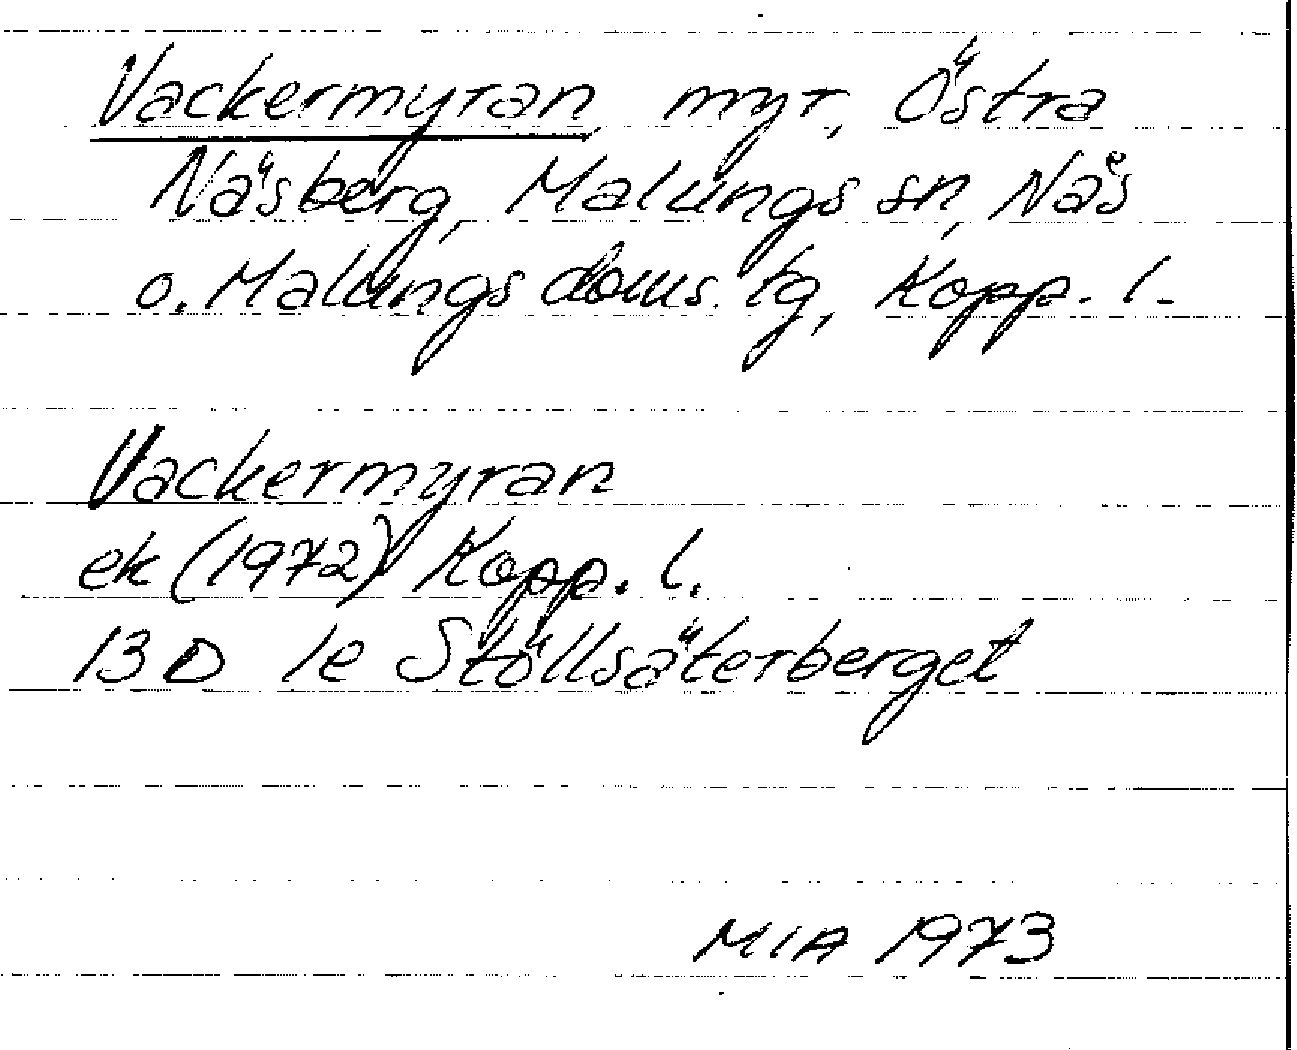 Vackermyran, myr, Östra
Näsberg, Malungs sn, Nås
o. Malungs doms. tg, Kopp. l.
Vackermyran
ek (1972) Kopp. l.
13 D 1e Stöllsäterberget
MIA 1973